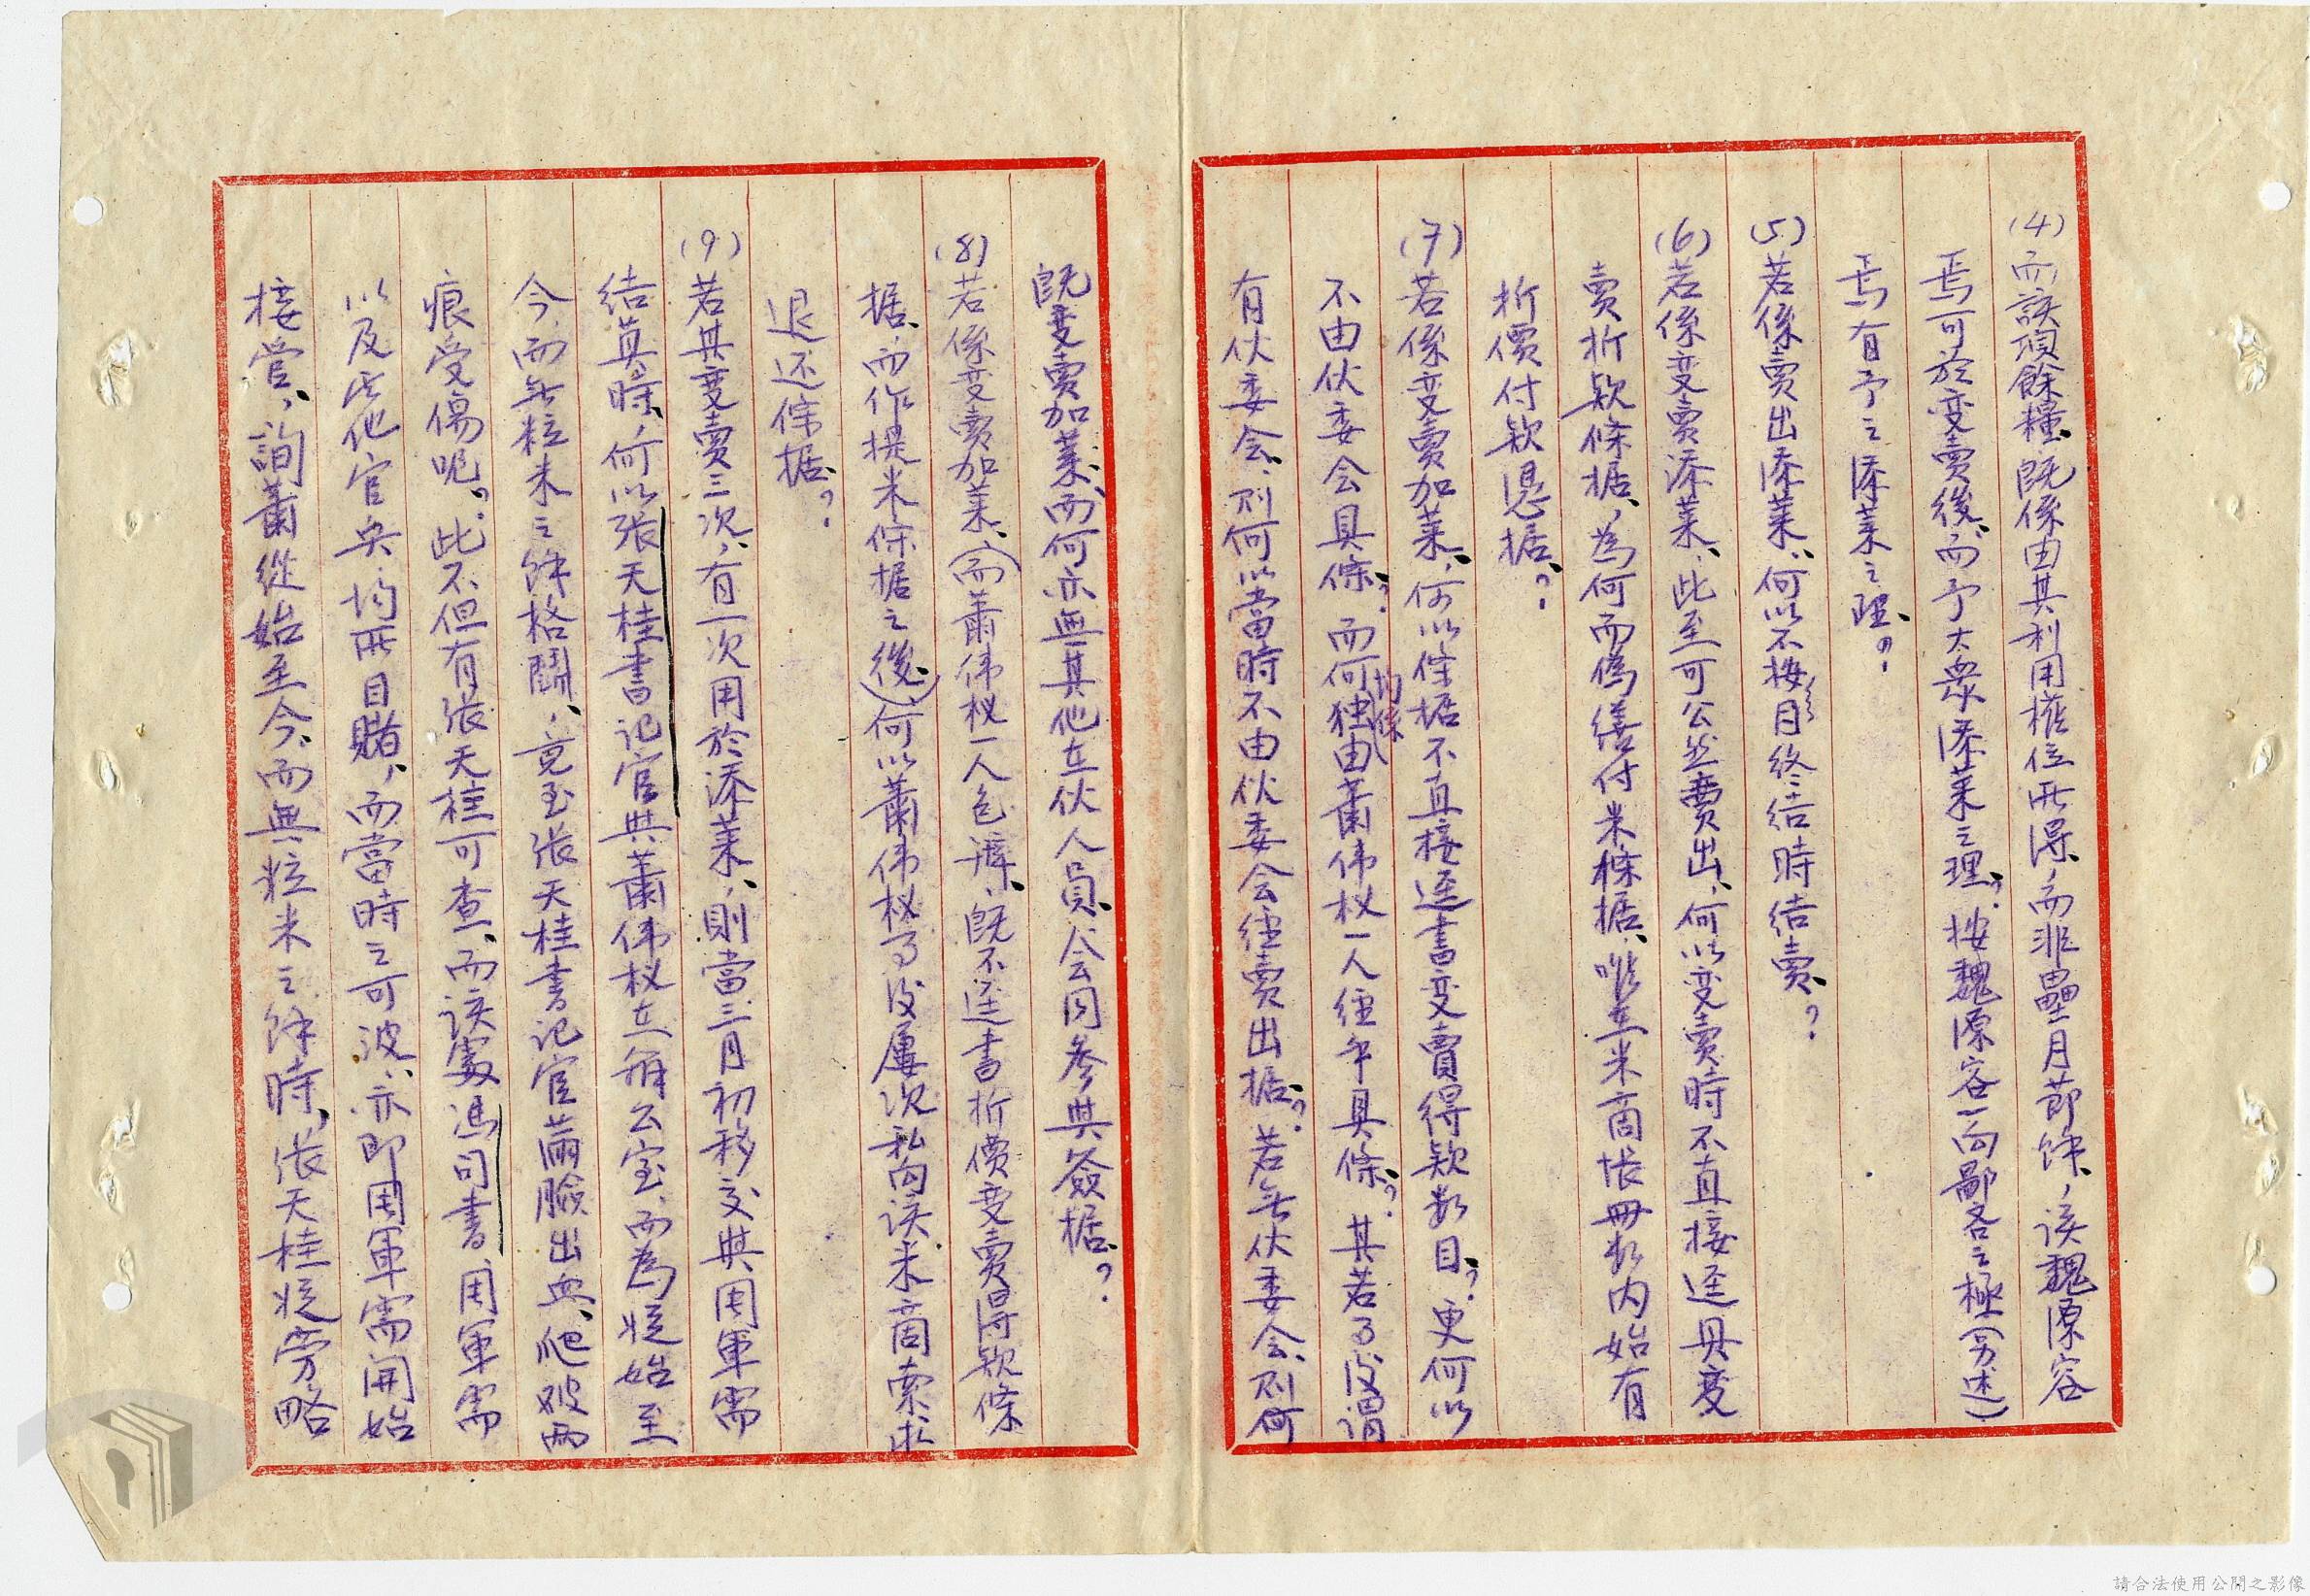 (4)而該項餘糧、既係由其利用權位所得、而非壘月節餘、該魏源容
焉可於变賣後、而予大眾添菜之理?按魏源容一向鄙吝之極(另述)
焉有予之添菜之理、?
(5)若係賣出添菜、何以不按月終結時結賣、?
(6)若係变賣添菜、此至可公然賣出、何以变賣時不直接逕具变
賣折款條據、為何而偽繕付米條据、唯在米商帳冊内始有
折價付款憑据、?
(7)若係变賣加菜、何以條据不直接逕書变賣得款数目、?更何以
不由伙委会具條、?而何独由蕭伟权一人经手具條、?其若事後謂
均係
有伙委会、則何以當時不由伙委会经賣出据、?若無伙委会、則何
既变賣加菜、而何亦無其他在伙人員、会同參與簽据、?
(8)若係变賣加菜、(而蕭伟权一人包辦、既不逕書折價变賣得款條
据、而作提米條据之後、)何以蕭伟权事後屢次私向该米商索求
退还條据、?
(9)若其变賣三次、有一次用於添菜、則當三月初移交與周軍需
结算時、何以張天桂書记官與蕭伟权在辦公室、而為從始至
今、而無粒米之餘格鬪、竟至張天桂書记官滿臉出血、爬破两
痕受傷呢、?此不但有張天桂可查、而该處馮司書、周軍需
以及其他官兵、均所目賭、而當時之可波、亦即周軍需開始
接管、詢蕭從始至今、而無粒米之餘時、張天桂從旁略
請合法使用公開之影像